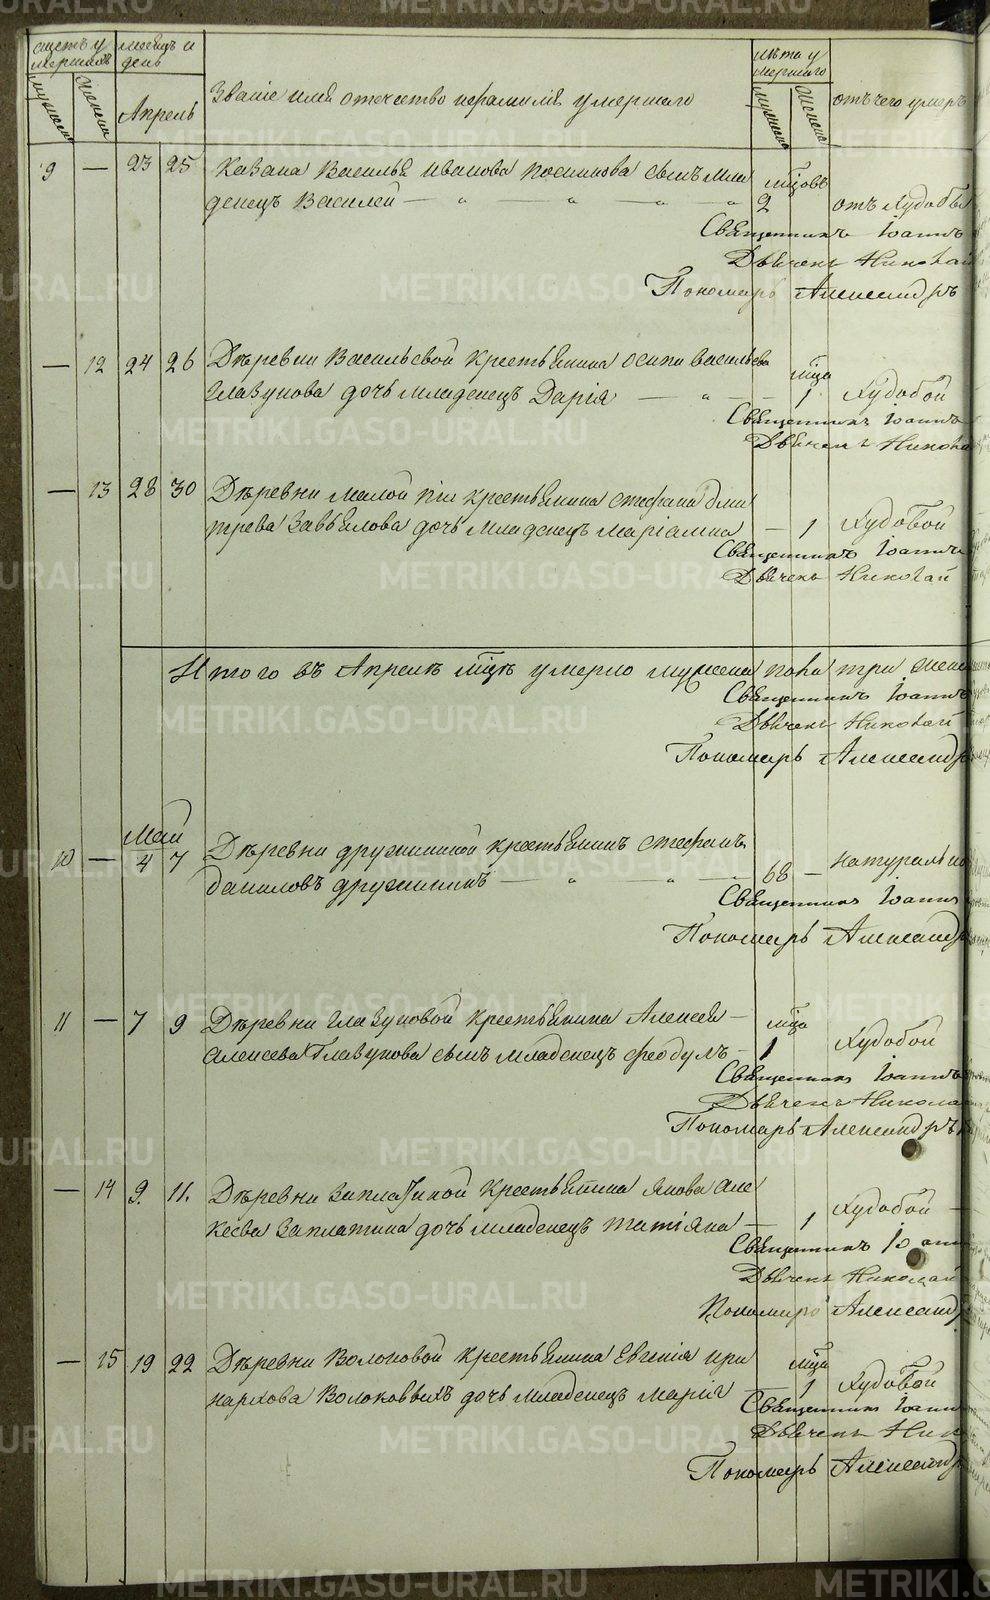 счетъ умершихъ
месяцъ и день
Званіе имя отечество и фамилія умершаго
лѣта умершаго
отъ чего умеръ
мужеска
женска
Апрель
мужеска
женска
9 — 23 25 Казака Василья Иванова сынъ мла
денецъ Василей — " — " — " — " мцовъ 2 отъ худобы
Священникъ Іоаннъ
Дьячекъ Николай
Пономарь Александръ
— 12 24 26 Деревни Васильевой крестьянина Осипа Васильева
Глазунова дочь младенецъ Дарія — " — — мца 1 худобой
Священникъ Іоаннъ
Дьячекъ Никола
— 13 28 30 Деревни Малой крестьянина Стефана Дми
трева Завьялова дочь младенецъ Маріамна — 1 худобой
Священникъ Іоаннъ
Дьячекъ Николай
Итого въ Апреле мце умерло мужеска пола три женс
Священникъ Іоаннъ
Дьячекъ Николай
Пономарь Александр
Май
10 — 4 7 Деревни Дружининой крестьянинъ Стефанъ
Даниловъ Дружининъ — " — " — " 68 — натурально
Священникъ Іоаннъ
Пономарь Александр
11 — 7 9 Деревни Глазуновой крестьянина Алексея —
Алексеева Глазунова сынъ младенецъ Феодулъ — мца 1 худобой
Священникъ Іоаннъ
Дьячекъ Никола
Пономарь Александръ
— 14 9. 11. Деревни Заплатиной крестьянина Якова Але
ксеева Заплатина дочь младенецъ Татіяна — 1 худобой —
Священникъ Іоанн
Дьячекъ Николай
Пономарь Александр
— 15 19 22 Деревни Волоковой крестьянина Евгенія
дочь младенецъ Марія — мца 1 худобой
Священникъ Іоанн
Дьячекъ Ник
Пономарь Александр
METRIKI.GASO-URAL.RU